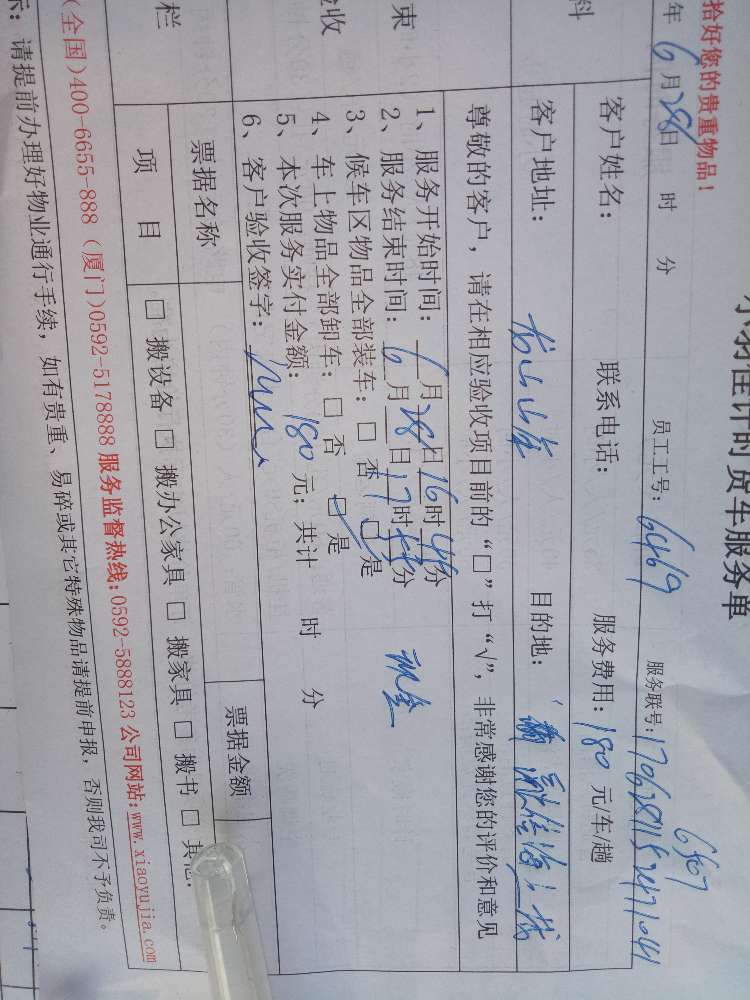 小羽佳计时货车服务单
拾好您的贵重物品！
年 6 月 28 日 时 分
员工工号： 6469
服务联号：
6807
客户姓名：
联系电话：
服务费用： 180 元/车/趟
料
客户地址：
目的地：
尊敬的客户，请在相应验收项目前的“□”打“√”，非常感谢您的评价和意见
束
收
栏
1、服务开始时间： 6 月 28 日 16 时 分
2、服务结束时间： 6 月 28 日 17 时 分
现金
3、候车区物品全部装车：□ 否 ☑ 是
4、车上物品全部卸车：□ 否 ☑ 是
5、本次服务实付金额： 180 元；共计 时 分
6、客户验收签字：
票据名称
票据金额
项 目
□ 搬设备 □ 搬办公家具 □ 搬家具 □ 搬书 □ 其他：
(全国)400-6655-888 (厦门)0592-5178888 服务监督热线:0592-5888123 公司网站:www.xiaoyujia.com
示：请提前办理好物业通行手续，如有贵重、易碎或其它特殊物品请提前申报，否则我司不予负责。